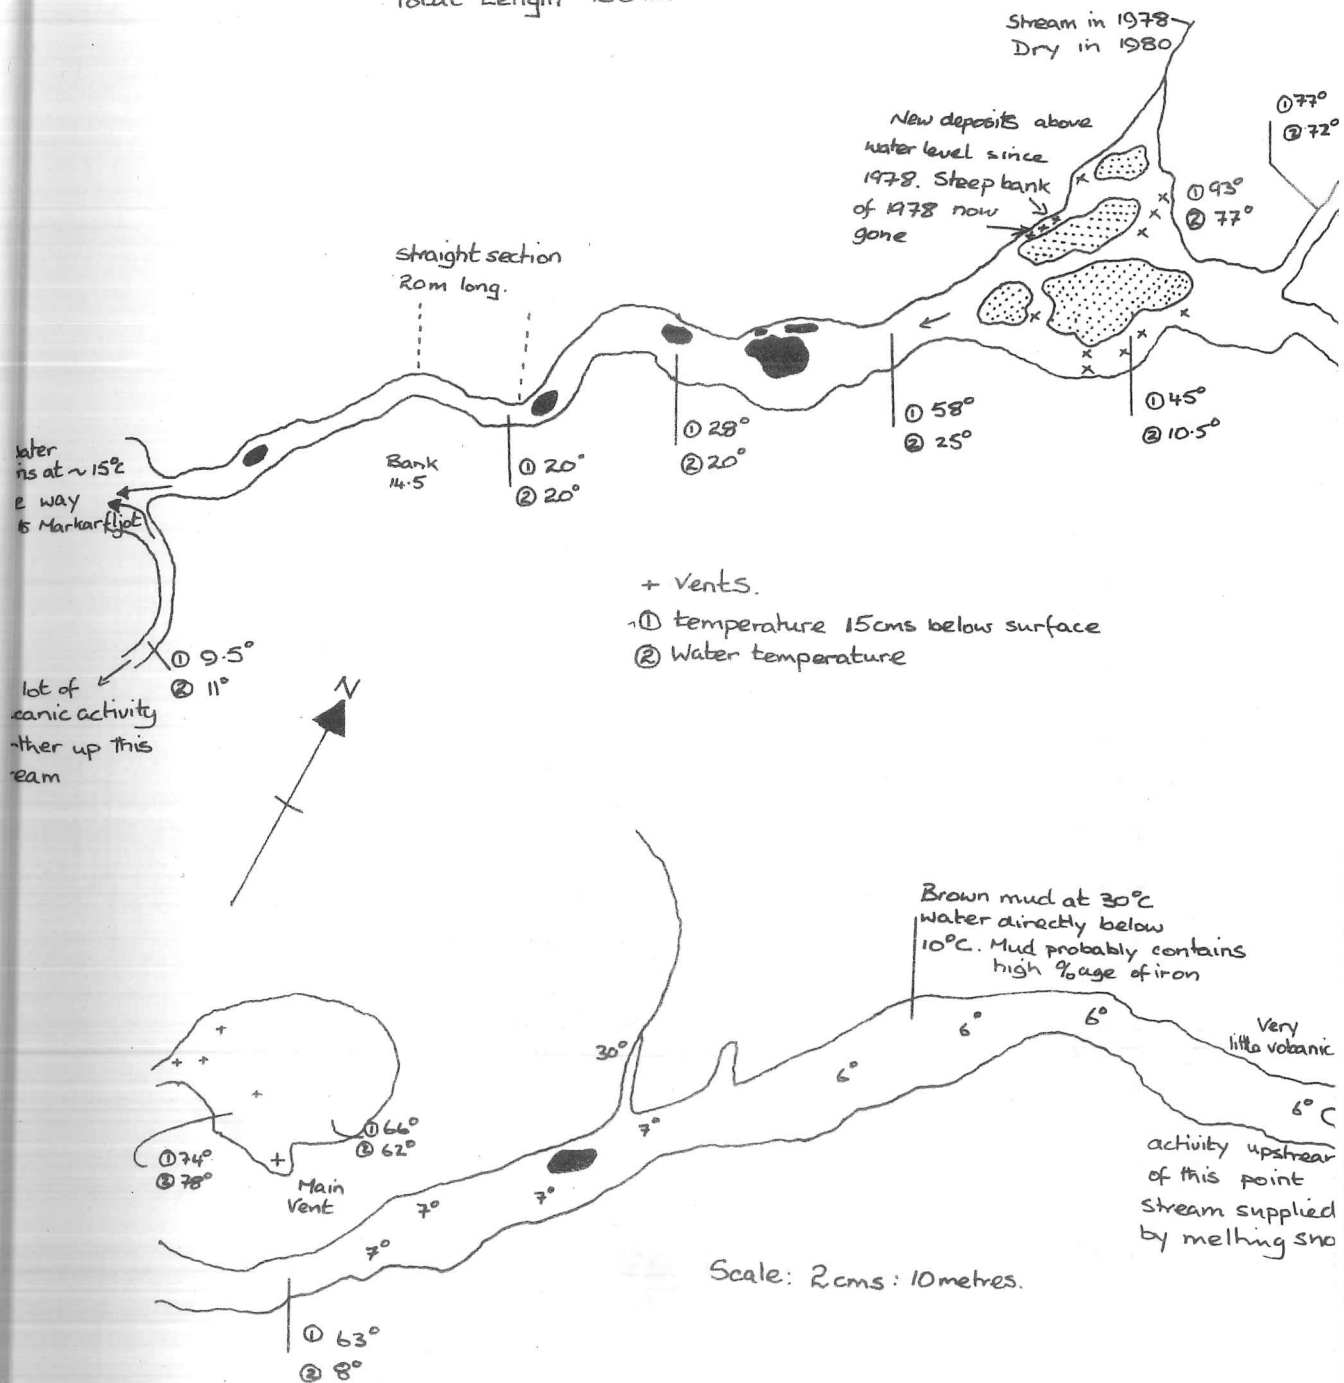 Total Length
Stream in 1978
Dry in 1980
① 77°
② 72°
New deposits above
water level since
1978. Steep bank
of 1978 now
gone
① 93°
② 77°
straight section
20m long.
① 45°
② 10.5°
① 58°
② 25°
① 28°
② 20°
① 20°
② 20°
Bank
14.5
ns at ~ 15°c
way
Markarfljot
+ Vents.
① temperature 15cms below surface
② Water temperature
① 9.5°
② 11°
lot of
canic activity
ther up this
eam
N
Brown mud at 30°c
water directly below
10°C. Mud probably contains
high %age of iron
6°
6°
6°
Very
little volcanic
6° C
activity upstrear
of this point
stream supplied
by melting sno
30°
7°
7°
7°
7°
① 66°
② 62°
① 74°
② 78°
Main
Vent
Scale: 2cms : 10metres.
① 63°
② 8°